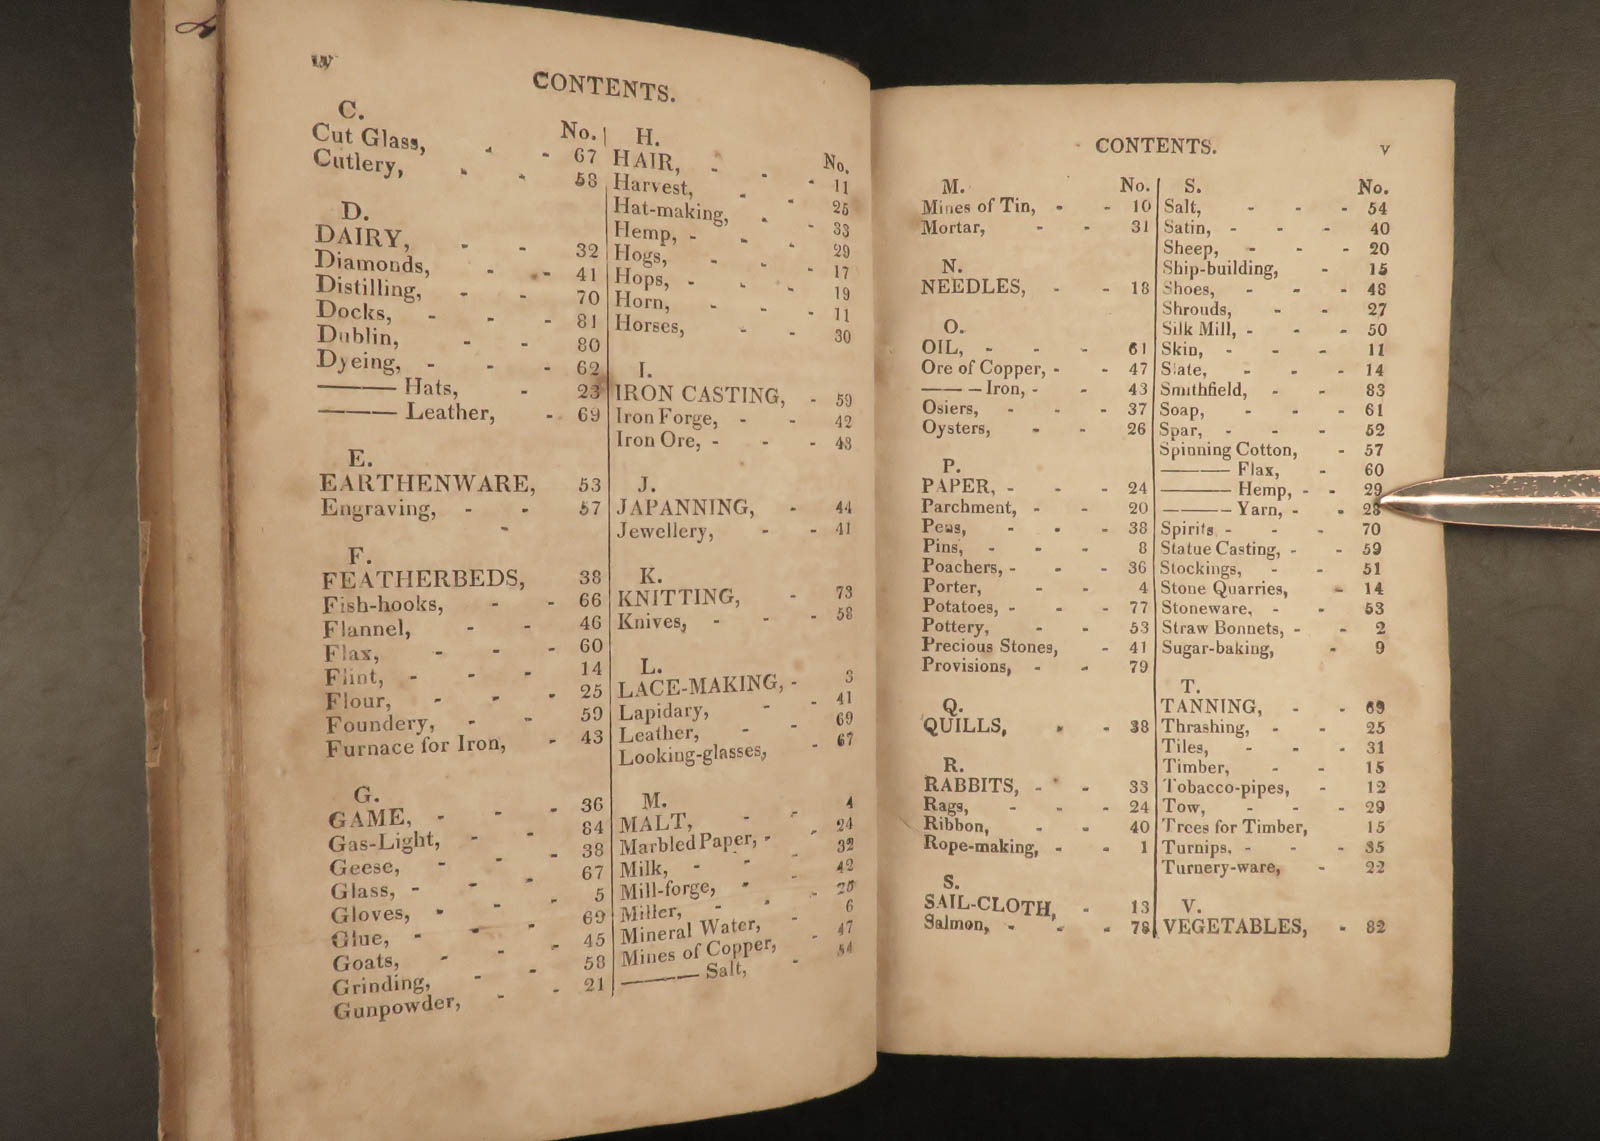 iv
CONTENTS.
C.
No.
Cut Glass, - - 67
Cutlery, - - 58
D.
DAIRY, - - 32
Diamonds, - - 41
Distilling, - - 70
Docks, - - - 81
Dublin, - - 80
Dyeing, - - - 62
——— Hats, - 23
——— Leather, - 69
E.
EARTHENWARE, 53
Engraving, - - 57
F.
FEATHERBEDS, 38
Fish-hooks, - - 66
Flannel, - - 46
Flax, - - - 60
Flint, - - - 14
Flour, - - - 25
Foundery, - - 59
Furnace for Iron, - 43
G.
GAME, - - - 36
Gas-Light, - - 84
Geese, - - - 38
Glass, - - - 67
Gloves, - - - 5
Glue, - - - 69
Goats, - - - 45
Grinding, - - 58
Gunpowder, - - 21
H.
No.
HAIR, - - - 11
Harvest, - - 25
Hat-making, - - 33
Hemp, - - - 29
Hogs, - - - 17
Hops, - - - 19
Horn, - - - 11
Horses, - - 30
I.
IRON CASTING, - 59
Iron Forge, - - 42
Iron Ore, - - - 43
J.
JAPANNING, - 44
Jewellery, - - 41
K.
KNITTING, - 73
Knives, - - - 58
L.
LACE-MAKING, - 3
Lapidary, - - 41
Leather, - - 69
Looking-glasses, - 67
M.
MALT, - - 4
Marbled Paper, - 24
Milk, - - - 32
Mill-forge, - - 42
Miller, - - -
Mineral Water, - 6
Mines of Copper, - 47
——— Salt, - 54
CONTENTS. v
M. No.
Mines of Tin, - - 10
Mortar, - - 31
N.
NEEDLES, - - 18
O.
OIL, - - - 61
Ore of Copper, - - 47
——— Iron, - - 43
Osiers, - - - 37
Oysters, - - 26
P.
PAPER, - - - 24
Parchment, - - 20
Peas, - - - 38
Pins, - - - 8
Poachers, - - - 36
Porter, - - 4
Potatoes, - - - 77
Pottery, - - 53
Precious Stones, - 41
Provisions, - - 79
Q.
QUILLS, - - 38
R.
RABBITS, - - 33
Rags, - - - 24
Ribbon, - - 40
Rope-making, - - 1
S.
SAIL-CLOTH, - 13
Salmon, - - - 78
S. No.
Salt, - - - 54
Satin, - - - 40
Sheep, - - - 20
Ship-building, - 15
Shoes, - - - 48
Shrouds, - - 27
Silk Mill, - - - 50
Skin, - - - 11
Slate, - - - 14
Smithfield, - - 83
Soap, - - - 61
Spar, - - - 52
Spinning Cotton, - 57
——— Flax, - 60
——— Hemp, - - 29
——— Yarn, - - 28
Spirits - - - 70
Statue Casting, - - 59
Stockings, - - 51
Stone Quarries, - 14
Stoneware, - - 53
Straw Bonnets, - - 2
Sugar-baking, - 9
T.
TANNING, - - 69
Thrashing, - - 25
Tiles, - - - 31
Timber, - - 15
Tobacco-pipes, - 12
Tow, - - - 29
Trees for Timber, 15
Turnips, - - - 35
Turnery-ware, - 22
V.
VEGETABLES, - 82